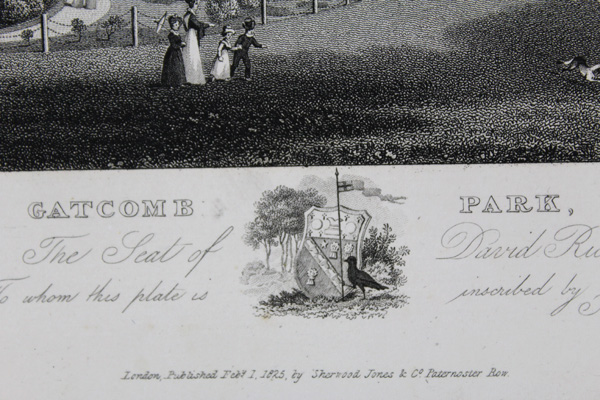 GATCOMB PARK,
The Seat of David
To whom this plate is inscribed by
London, Published Feby. 1, 1825, by Sherwood Jones & Co. Paternoster Row.